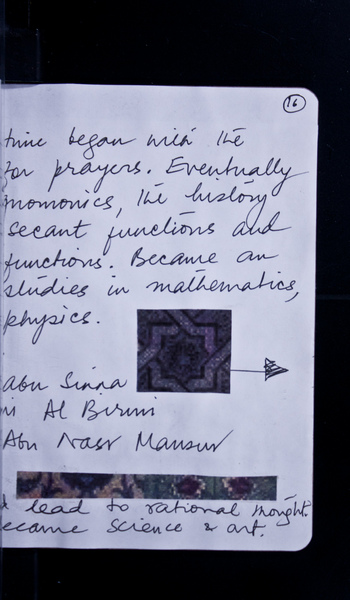 16
time began with the
for prayers. Eventually
nomonics, the history
secant functions and
functions. Became an
studies in mathematics,
physics.
Abu Sinna
ni Al Biruni
Abu Nasr Mansur
d lead to rational thought.
ecame science & art.